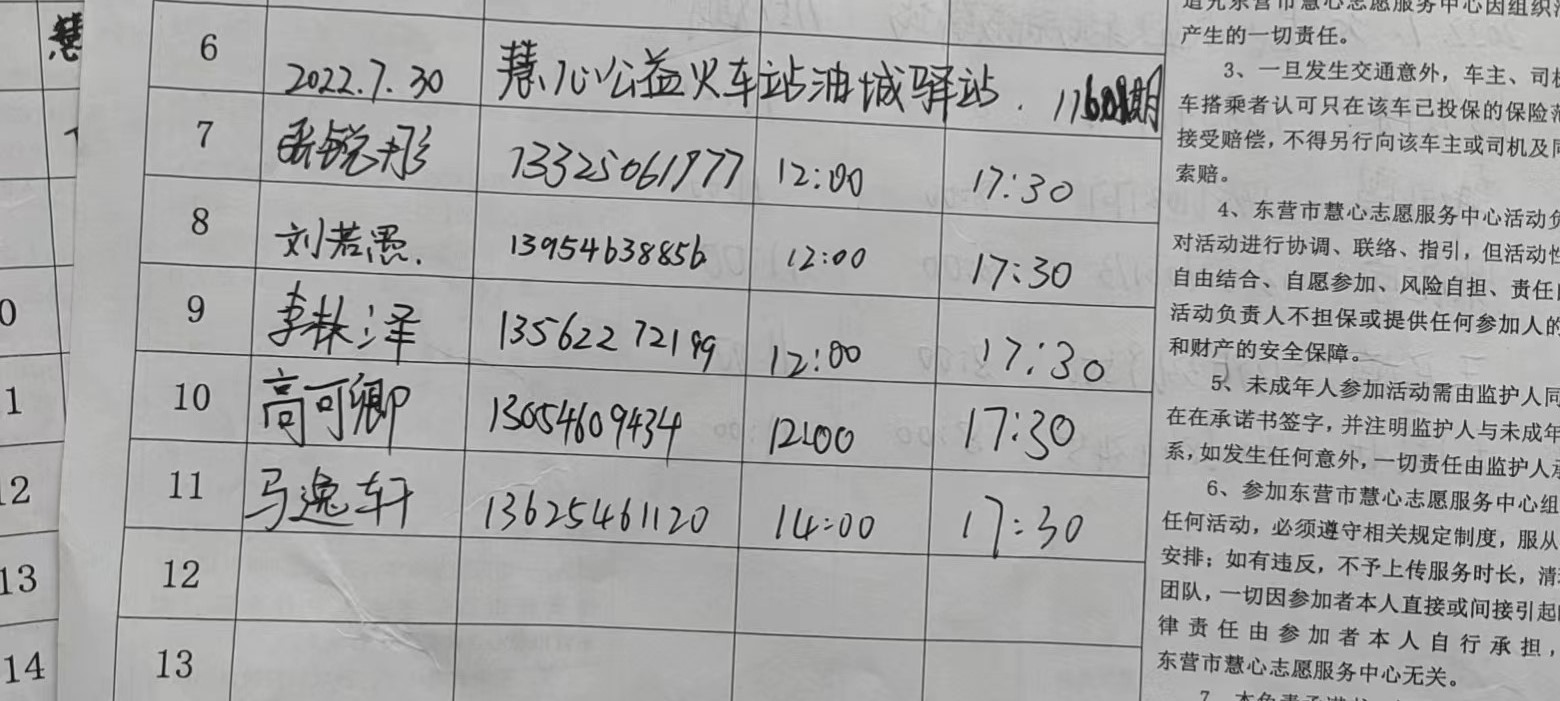 6 2022.7.30 慧心公益火车站油城驿站. 期
7 锐彤 13325061977 12:00 17:30
8 刘若愚. 13954638856 12:00 17:30
9 李林泽 13562272199 12:00 17:30
10 高可卿 13054609434 12:00 17:30
11 马逸轩 13625461120 14:00 17:30
12
13
慧
0
1
12
13
14
追究东营市慧心志愿服务中心因组织
产生的一切责任。
3、一旦发生交通意外，车主、司机
车搭乘者认可只在该车已投保的保险范
接受赔偿，不得另行向该车主或司机及同
索赔。
4、东营市慧心志愿服务中心活动负
对活动进行协调、联络、指引，但活动性
自由结合、自愿参加、风险自担、责任
活动负责人不担保或提供任何参加人的
和财产的安全保障。
5、未成年人参加活动需由监护人同
在在承诺书签字，并注明监护人与未成年
系，如发生任何意外，一切责任由监护人承
6、参加东营市慧心志愿服务中心组
任何活动，必须遵守相关规定制度，服从
安排；如有违反，不予上传服务时长，清
团队，一切因参加者本人直接或间接引起
律责任由参加者本人自行承担，
东营市慧心志愿服务中心无关。
7、本免责承诺书